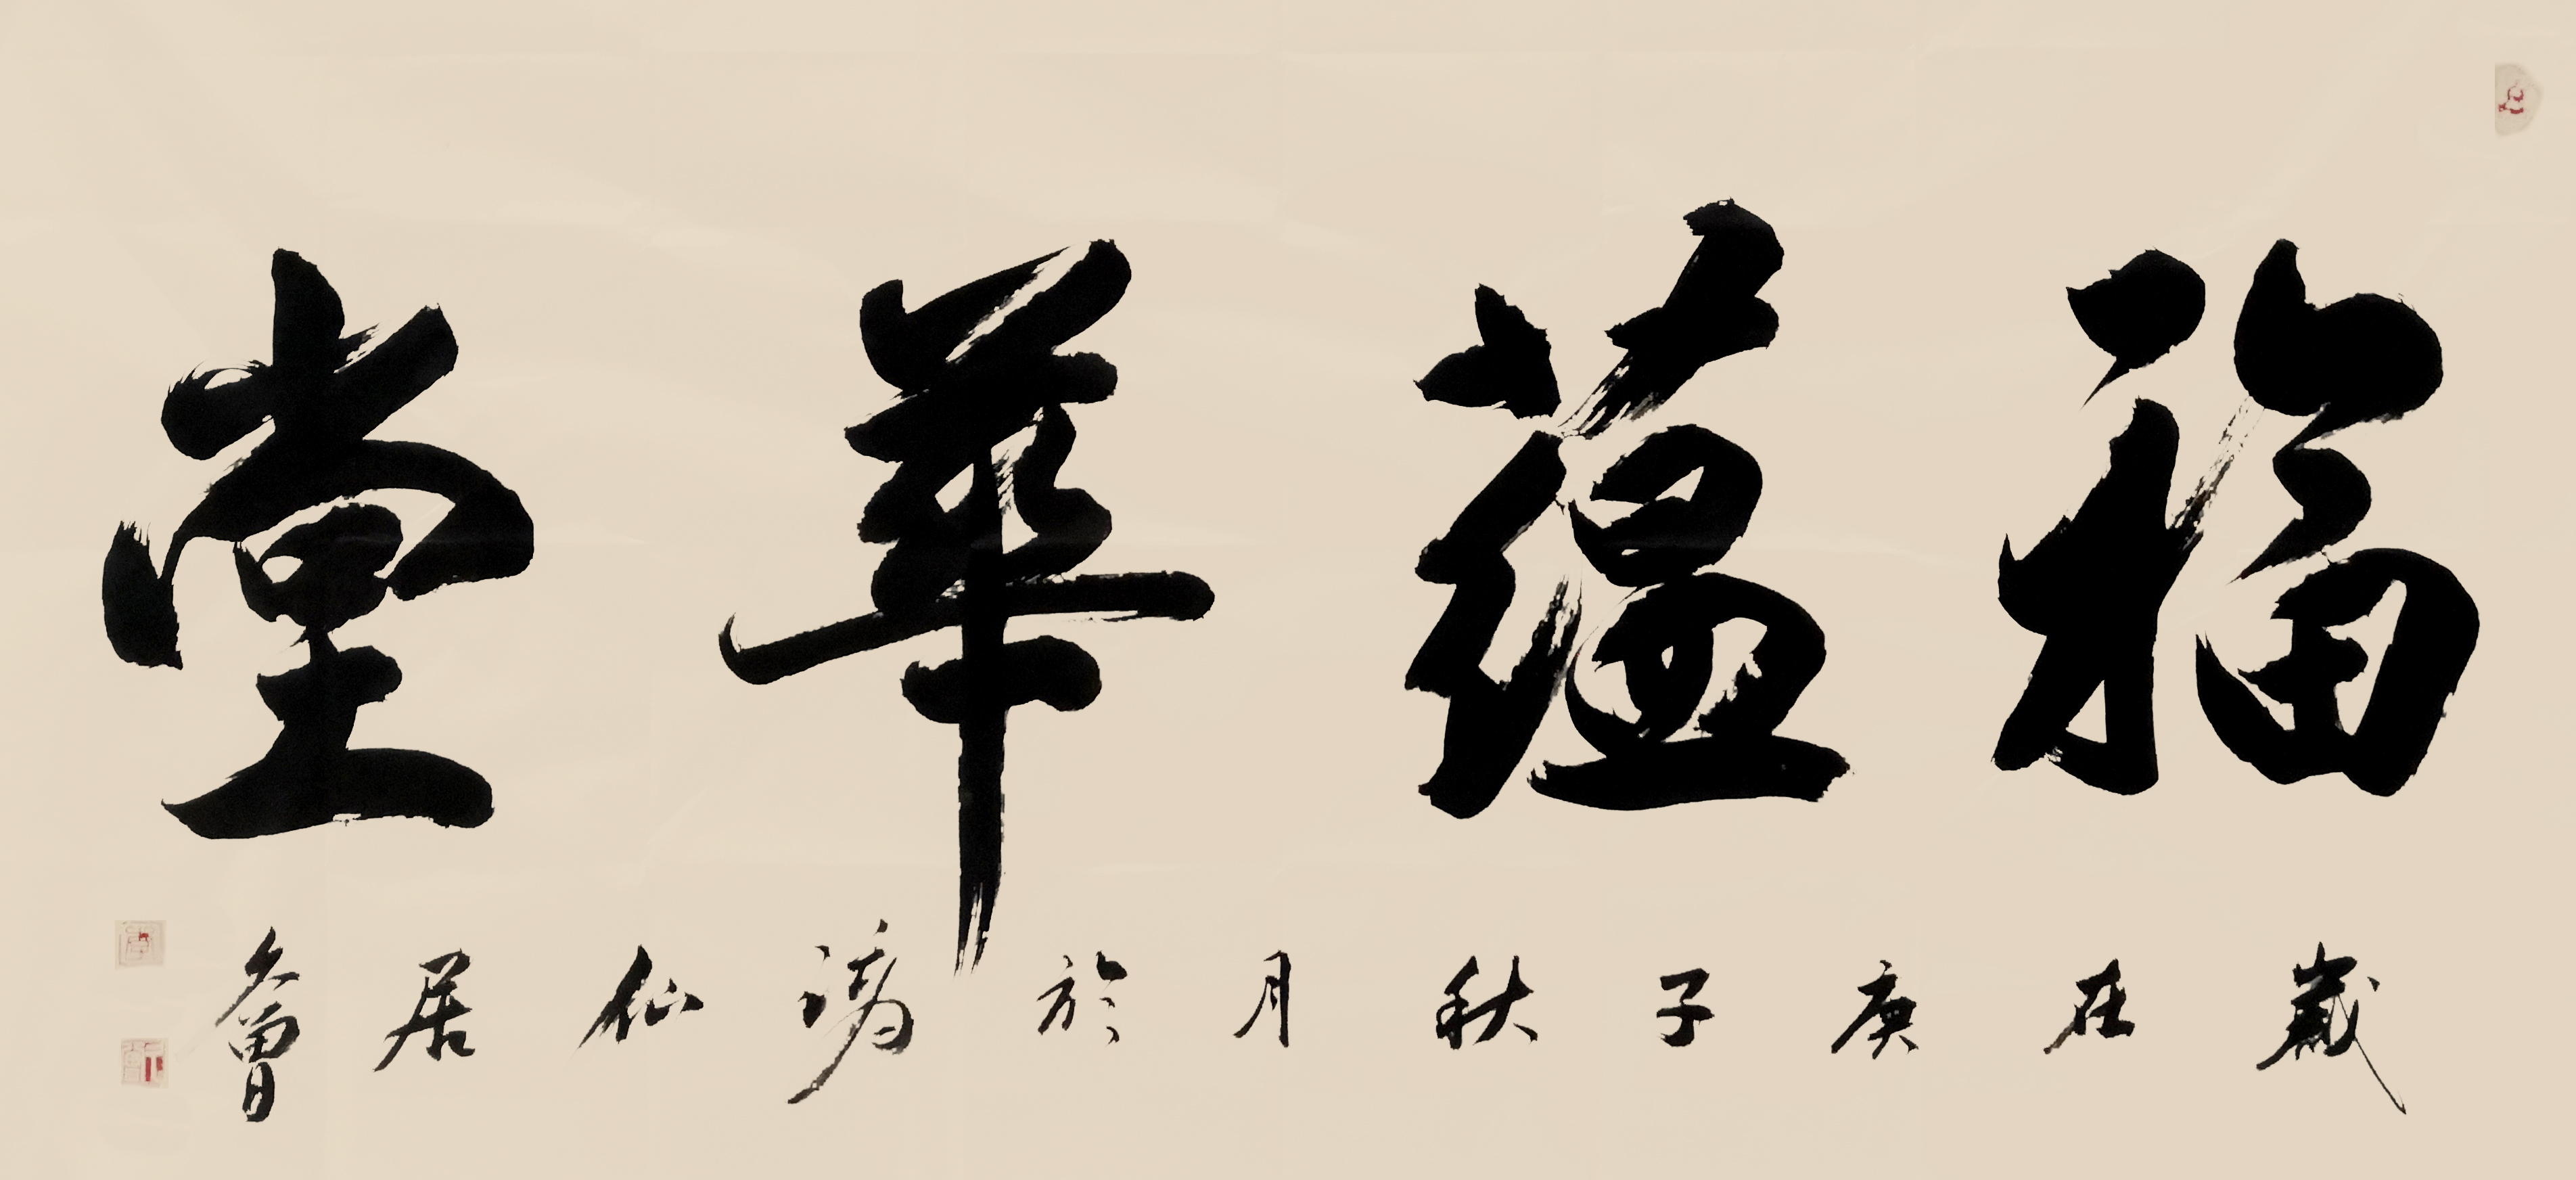 福蕴華堂
歲在庚子秋月於謫仙居會